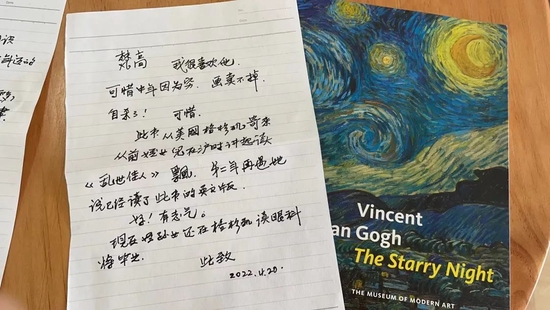 识
梵高 我很喜欢他。
可惜中年因为穷，画卖不掉
自杀了！ 可惜。
此书从美国 寄来
从前 女儿在沪时 读
《乱世佳人》飘，第二年再遇她
说已经读了此书的英文版。
好！有志气。
现在 孙女还在 读眼科
将毕业。
此致
2022.4.20.
Vincent
van Gogh
The Starry Night
THE MUSEUM OF MODERN ART